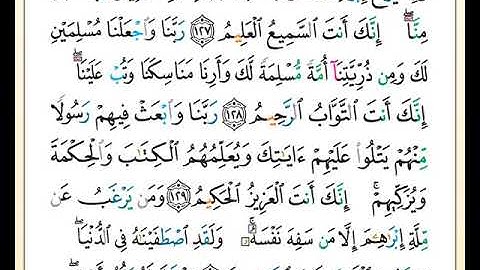 مِنَّآۖ إِنَّكَ أَنتَ ٱلسَّمِيعُ ٱلْعَلِيمُ ١٢٧ رَبَّنَا وَٱجْعَلْنَا مُسْلِمَيْنِ
لَكَ وَمِن ذُرِّيَّتِنَآ أُمَّةً مُّسْلِمَةً لَّكَ وَأَرِنَا مَنَاسِكَنَا وَتُبْ عَلَيْنَآۖ
إِنَّكَ أَنتَ ٱلتَّوَّابُ ٱلرَّحِيمُ ١٢٨ رَبَّنَا وَٱبْعَثْ فِيهِمْ رَسُولًا
مِّنْهُمْ يَتْلُوا۟ عَلَيْهِمْ ءَايَـٰتِكَ وَيُعَلِّمُهُمُ ٱلْكِتَـٰبَ وَٱلْحِكْمَةَ
وَيُزَكِّيهِمْۚ إِنَّكَ أَنتَ ٱلْعَزِيزُ ٱلْحَكِيمُ ١٢٩ وَمَن يَرْغَبُ عَن
مِّلَّةِ إِبْرَٰهِـۧمَ إِلَّا مَن سَفِهَ نَفْسَهُۥۚ وَلَقَدِ ٱصْطَفَيْنَـٰهُ فِى ٱلدُّنْيَاۖ